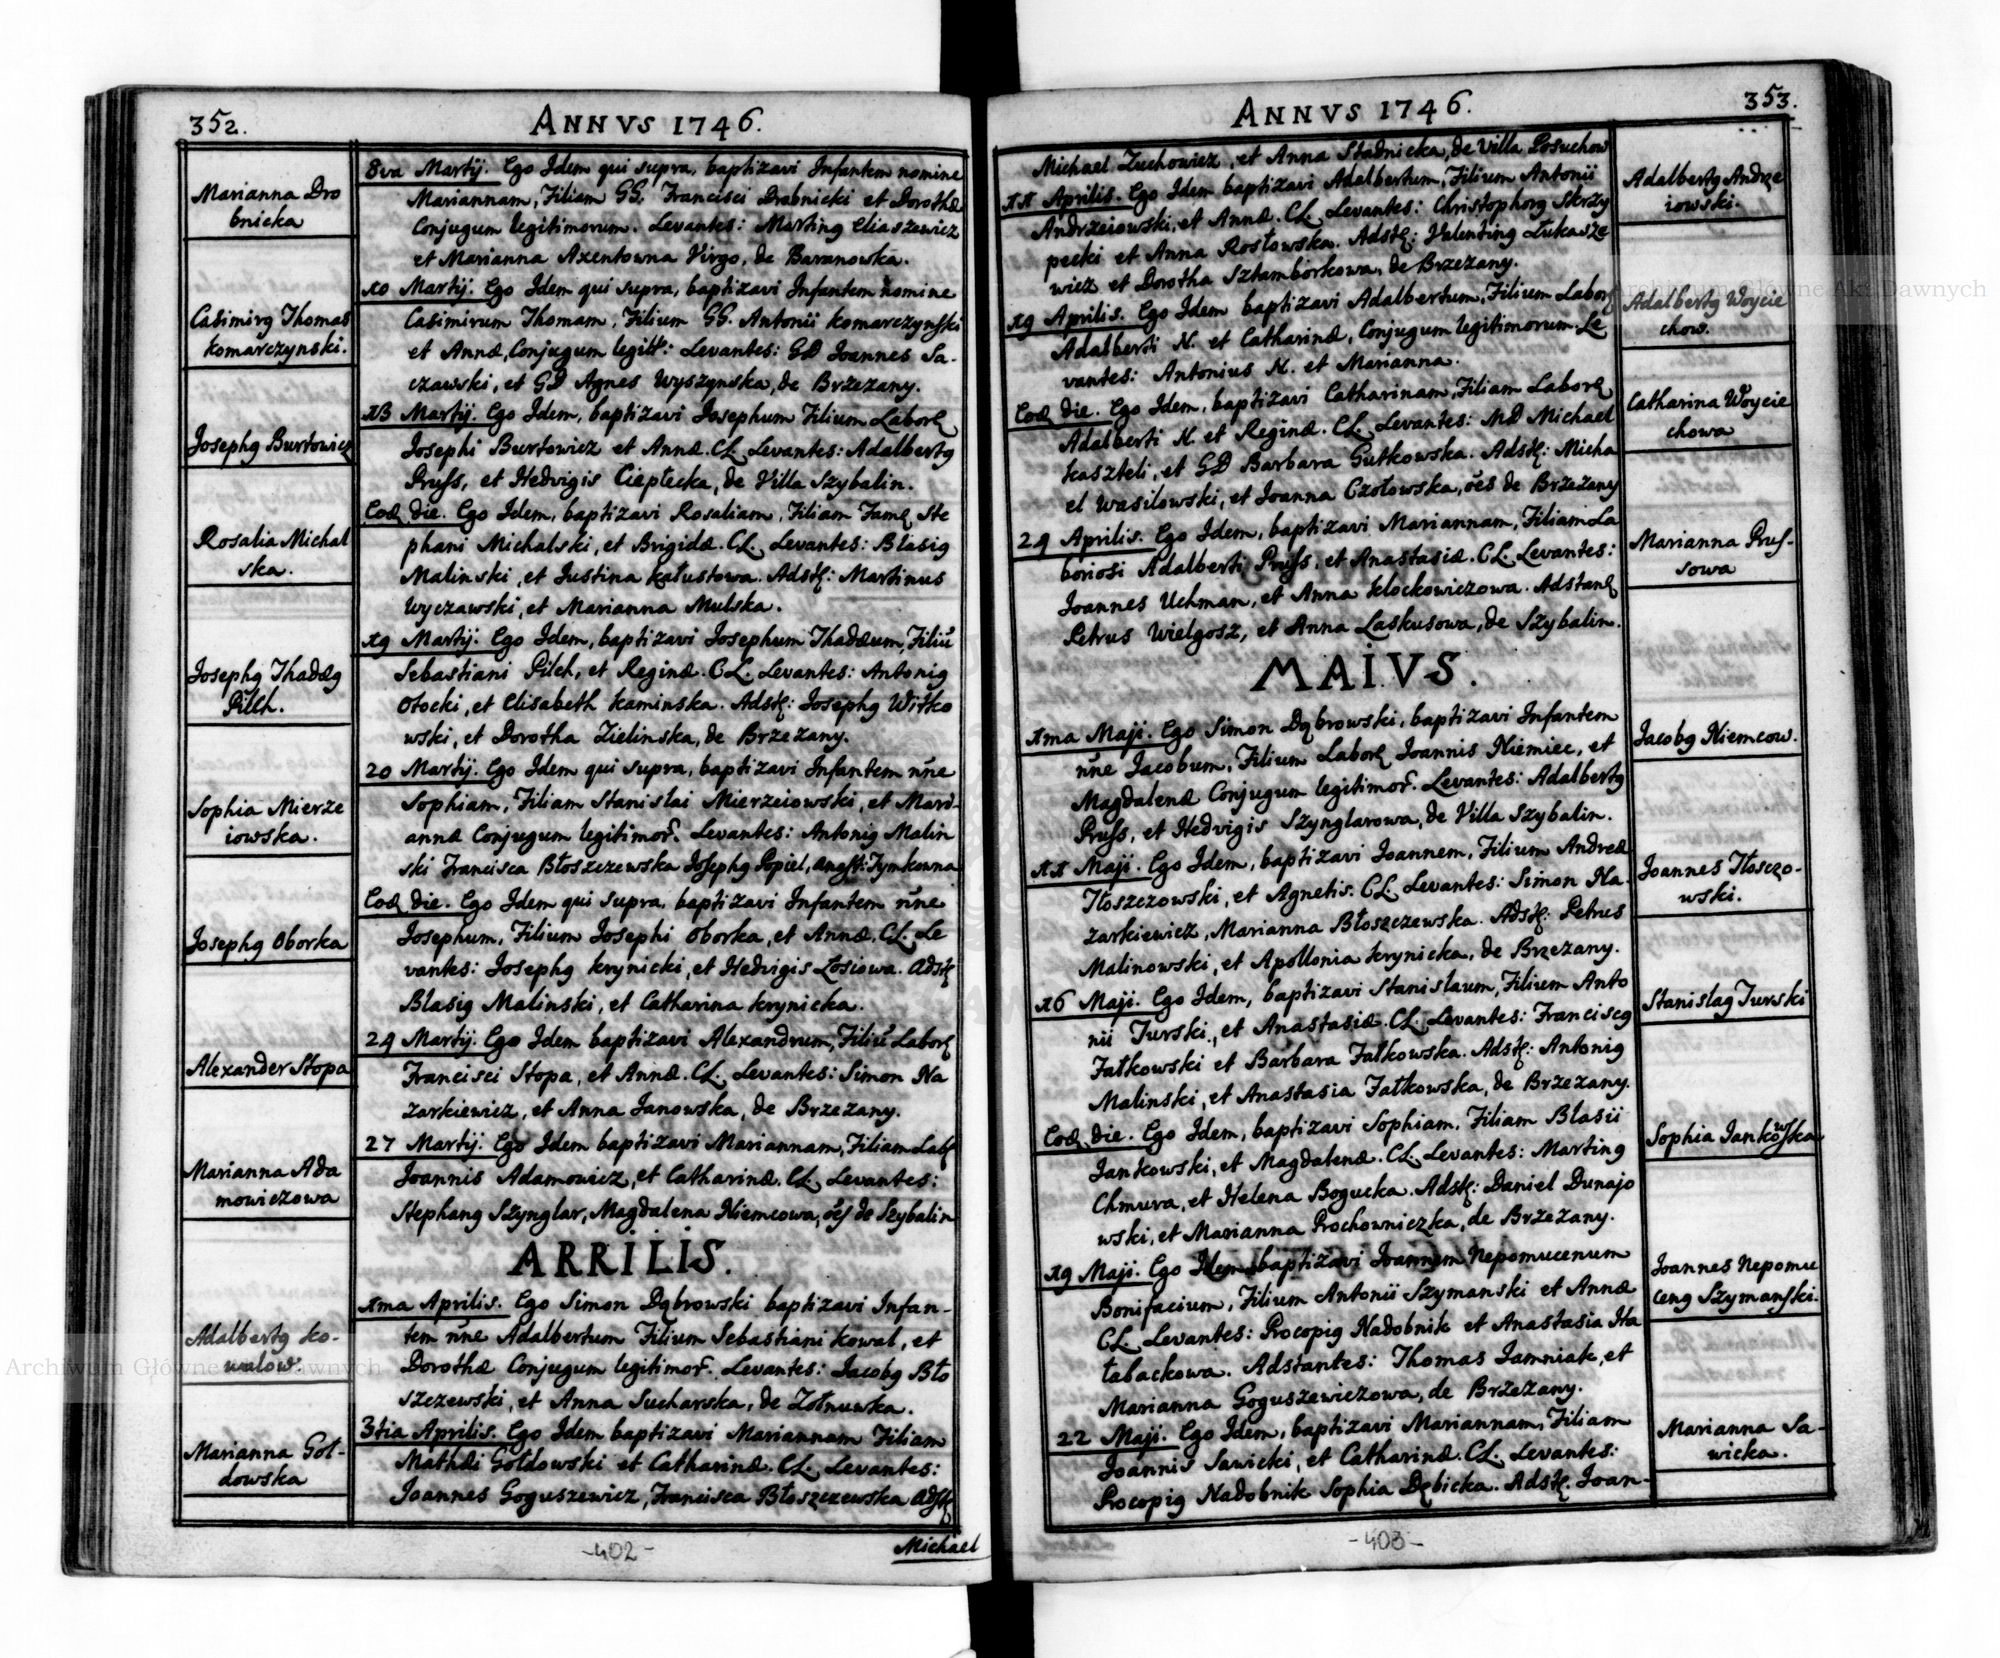 352.
ANNVS 1746.
Marianna Dro
bnicka
8va Martij. Ego Idem qui supra, baptizavi Infantem nomine
Mariannam, Filiam GG. Francisci Drobnicki et Dorothæ
Conjugum legitimorum. Levantes: Martinꝯ Eliaszewicz
et Marianna Axentowna Virgo, de Baranowka.
Casimirꝯ Thomas
Komarczynski.
10 Martij. Ego Idem qui supra, baptizavi Infantem nomine
Casimirum Thomam, Filium GG. Antonii Komarczynski
et Annæ, Conjugum legitt: Levantes: GD Joannes Sa-
czawski, et GD Agnes Wyszynska, de Brzezany.
Josephꝯ Burtowicz
13 Martij. Ego Idem, baptizavi Josephum Filium Labor
Josephi Burtowicz et Annæ. CL. Levantes: Adalbertꝯ
Pruss, et Hedvigis Ciepłecka, de Villa Szybalin.
Rosalia Michal
ska.
Eod die. Ego Idem, baptizavi Rosaliam, Filiam Fam Ste
phani Michalski, et Brigidæ. CL. Levantes: Blasiꝯ
Malinski, et Justina Kałustowa. Adst: Martinus
Wyczawski, et Marianna Mulska.
Josephꝯ Thadæꝯ
Pilch.
19 Martij. Ego Idem, baptizavi Josephum Thadæum, Filiū
Sebastiani Pilch, et Reginæ. CL. Levantes: Antoniꝯ
Otocki, et Elisabeth Kaminska. Adst: Josephꝯ Witko
wski, et Dorotha Zielinska, de Brzezany.
Sophia Mierze
iowska.
20 Martij. Ego Idem qui supra, baptizavi Infantem nn̄e
Sophiam, Filiam Stanislai Mierzeiowski, et Mari-
annæ Conjugum legitimor. Levantes: Antoniꝯ Malin
ski Francisca Błoszczewska Josephꝯ Popiel, Anast: Tymkonna
Josephꝯ Oborka
Eod die. Ego Idem qui supra, baptizavi Infantem nn̄e
Josephum, Filium Josephi Oborka, et Annæ. CL. Le
vantes: Josephꝯ Krynicki, et Hedvigis Łosiowa. Adst
Blasiꝯ Malinski, et Catharina Krynicka.
Alexander Stopa
24 Martij. Ego Idem baptizavi Alexandrum, Filiū Labor
Francisci Stopa, et Annæ. CL. Levantes: Simon Na
zarkiewicz, et Anna Janowska, de Brzezany.
Marianna Ada
mowiczowa
27 Martij. Ego Idem baptizavi Mariannam, Filiam Lab
Joannis Adamowicz, et Catharinæ. CL. Levantes:
Stephanꝯ Szynglar, Magdalena Niemcowa, oēs de Szybalin
ARRILIS.
Adalbertꝯ Ko-
walow.
1ma Aprilis. Ego Simon Dąbrowski baptizavi Infan-
tem nn̄e Adalbertum Filium Sebastiani Kowal, et
Dorothæ Conjugum legitimor. Levantes: Jacobꝯ Bło
szczewski, et Anna Sucharska, de Zołnuwka.
Marianna Goł-
dowska
3tia Aprilis. Ego Idem baptizavi Mariannam Filiam
Mathæi Gołdowski et Catharinæ. CL. Levantes:
Joannes Goguszewicz, Francisca Błoszczewska Adst
Michael
-402-
353.
ANNVS 1746.
Michael Zuchowicz, et Anna Stadnicka, de Villa Posuchow
Adalbertꝯ Andrze
iowski.
11 Aprilis. Ego Idem baptizavi Adalbertum, Filium Antonii
Andrzeiowski, et Annæ. CL. Levantes: Christophorꝯ Skrzy
pecki et Anna Rosłowska. Adst: Valentinꝯ Łukasze
wicz et Dorotha Sztamborkowa, de Brzezany.
Adalbertꝯ Woycie
chow.
19 Aprilis. Ego Idem baptizavi Adalbertum, Filium Labor
Adalberti N. et Catharinæ, Conjugum legitimorum. Le
vantes: Antonius N. et Marianna.
Catharina Woycie
chowa
Eod die. Ego Idem, baptizavi Catharinam, Filiam Labor
Adalberti N. et Reginæ. CL. Levantes: MD Michael
Kaszteli, et GD Barbara Gutkowska. Adst: Micha
el Wasilowski, et Joanna Czołowska, oēs de Brzezany
Marianna Prus-
sowa
24 Aprilis. Ego Idem, baptizavi Mariannam, Filiam La
boriosi Adalberti Pruss, et Anastasiæ. CL. Levantes:
Joannes Uchman, et Anna Klockowiczowa. Adstan
Petrus Wielgosz, et Anna Laskusowa, de Szybalin.
MAIVS.
Jacobꝯ Niemcow.
1ma Maji. Ego Simon Dąbrowski, baptizavi Infantem
nn̄e Jacobum, Filium Labor Joannis Niemiec, et
Magdalenæ Conjugum legitimor. Levantes: Adalbertꝯ
Pruss, et Hedvigis Szynglarowa, de Villa Szybalin.
Joannes Tłoszczo-
wski.
11 Maji. Ego Idem, baptizavi Joannem, Filium Andreæ
Tłoszczowski, et Agnetis. CL. Levantes: Simon Na
zarkiewicz, Marianna Błoszczewska. Adst: Petrus
Malinowski, et Apollonia Krynicka, de Brzezany.
Stanislaꝯ Turski
16 Maji. Ego Idem, baptizavi Stanislaum, Filium Anto
nii Turski, et Anastasiæ. CL. Levantes: Franciscꝯ
Fatkowski et Barbara Fatkowska. Adst: Antoniꝯ
Malinski, et Anastasia Fatkowska, de Brzezany.
Sophia Jankowska
Eod die. Ego Idem, baptizavi Sophiam, Filiam Blasii
Jankowski, et Magdalenæ. CL. Levantes: Martinꝯ
Chmura, et Helena Bogucka. Adst: Daniel Dunajo
wski, et Marianna Prochowniczka, de Brzezany.
Joannes Nepomu
cenꝯ Szymanski.
19 Maji. Ego Idem baptizavi Joannem Nepomucenum
Bonifacium, Filium Antonii Szymanski et Annæ
CL. Levantes: Procopiꝯ Nadobnik et Anastasia Ha
tabackowa. Adstantes: Thomas Jamniak, et
Marianna Goguszewiczowa, de Brzezany.
Marianna Sa-
wicka.
22 Maji. Ego Idem, baptizavi Mariannam, Filiam
Joannis Sawicki, et Catharinæ. CL. Levantes:
Procopiꝯ Nadobnik Sophia Dębicka. Adst. Joan-
-403-
Archiwum Główne Akt Dawnych
Archiwum Główne Akt Dawnych